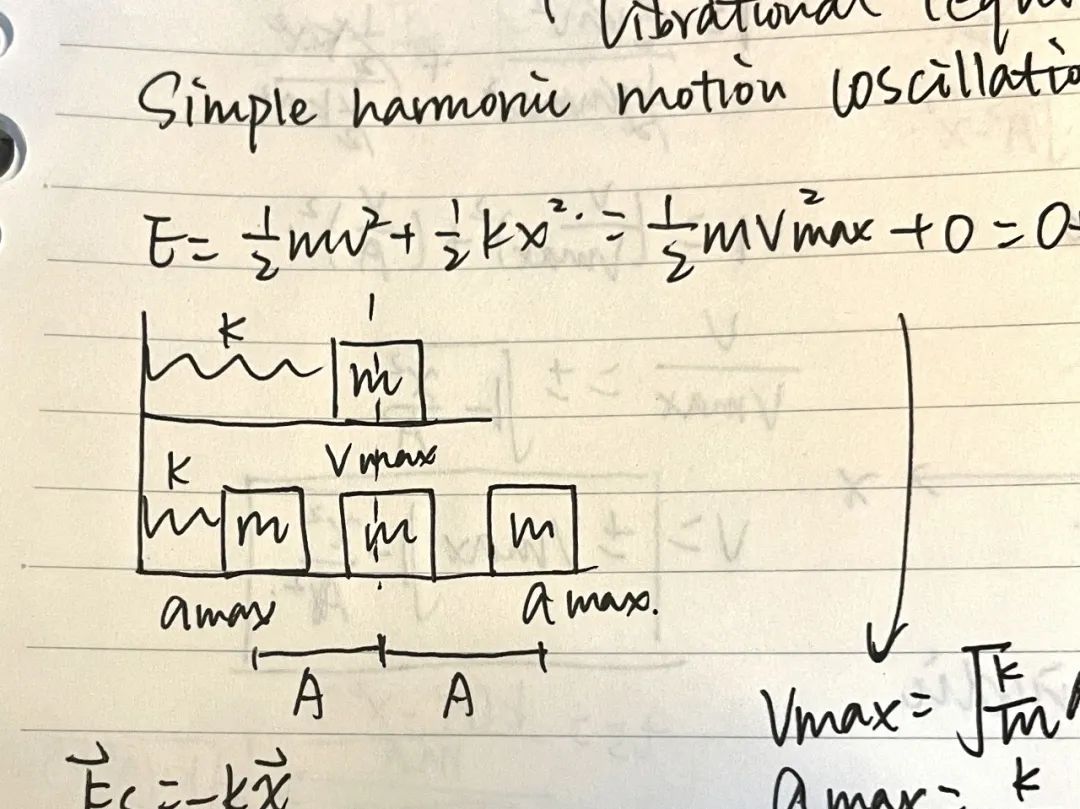 Vibrational
Simple harmonic motion (oscillatio
E = ½mv² + ½kx² = ½mv²max + 0 = 0
k
m
k
Vmax
m m m
amax amax.
A A
Vmax = √(k/m) A
F⃗s = -kx⃗
amax = k